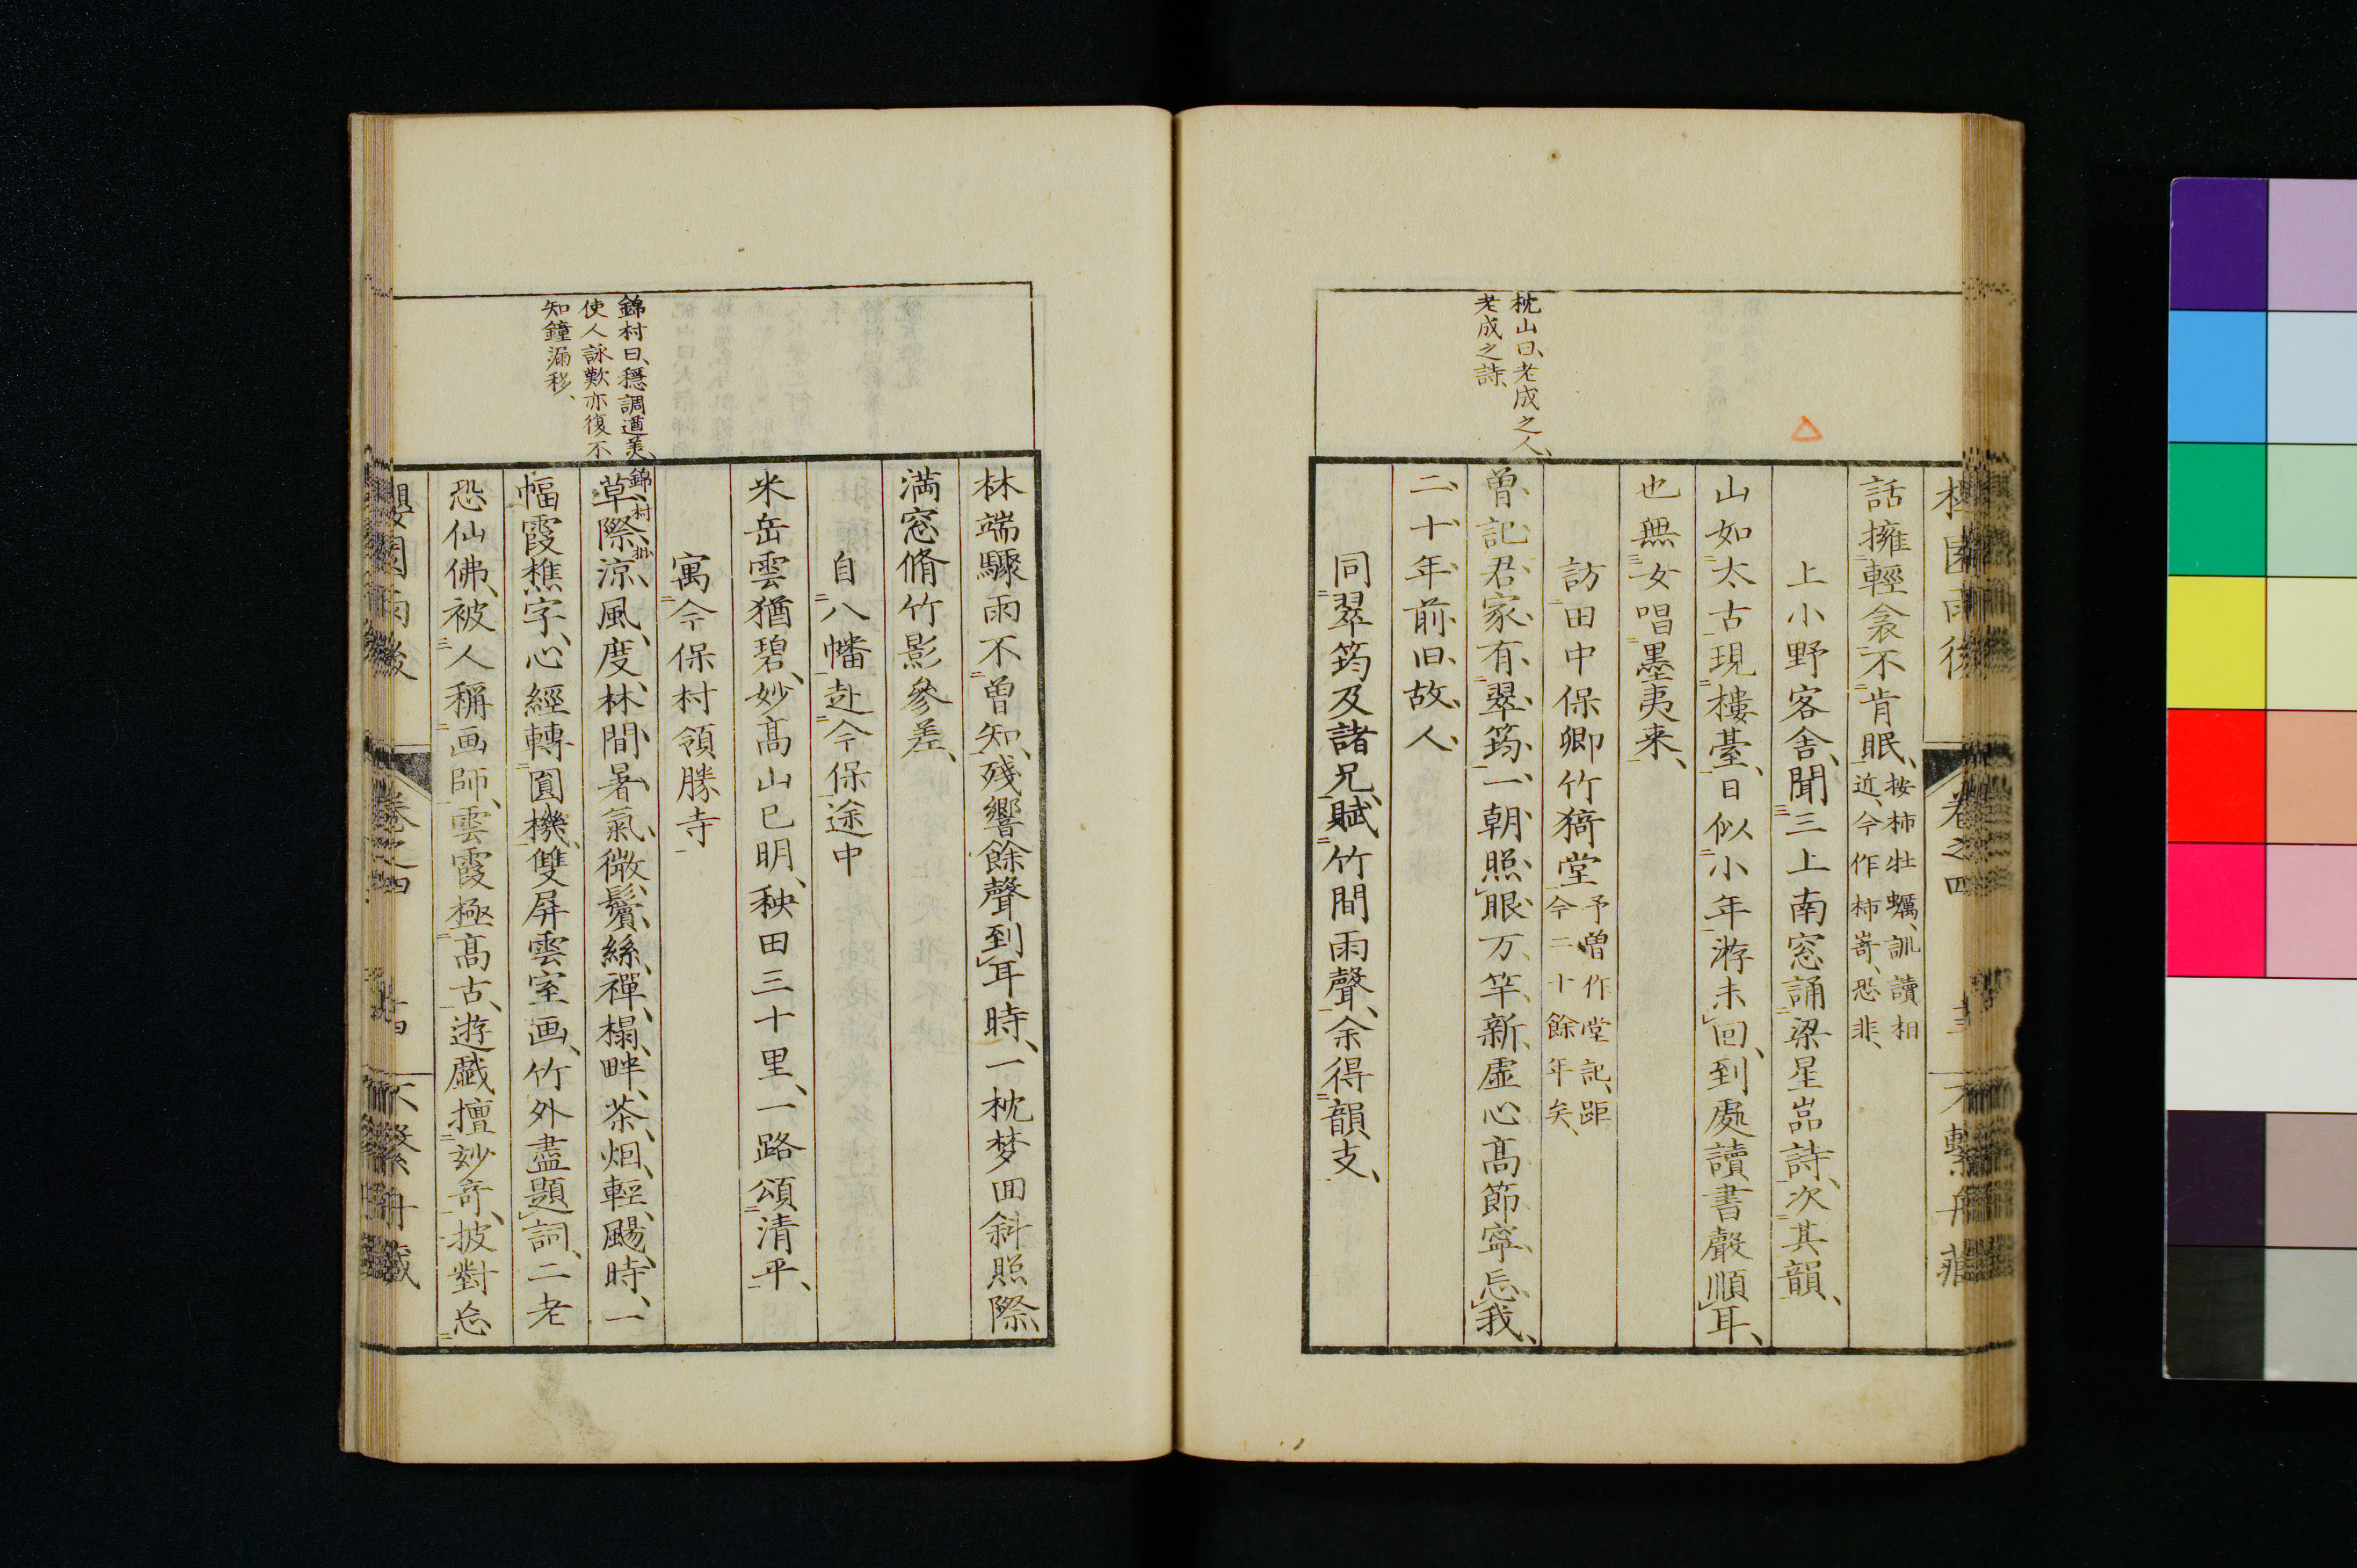 枕山曰、老成之人、
老成之詩、
話擁輕衾不肯眠、按柿牡蠣、訓讀相
近、今作柿嵜、恐非、
上小野客舍、聞三上南窓誦梁星嵓詩、次其韻、
山如太古現樓臺、日似小年游未回、到處讀書聲順耳、
也無女唱墨夷来、
訪田中保卿竹猗堂予曽作堂記、距
今二十餘年矣、
曽記君家有翠筠、一朝照眼万竿新、虛心高節寧忘我、
二十年前旧故人、
同翠筠及諸兄、賦竹間雨聲、余得韻支、
錦村曰、穏調遒美、
使人詠歎亦復不
知鐘漏移、
林端驟雨不曽知、殘響餘聲到耳時、一枕梦回斜照際、
満窓脩竹影參差、
自八幡赴今保途中
米岳雲猶碧、妙髙山已明、秧田三十里、一路頌清平、
寓今保村領勝寺
錦村抄
草際凉風度、林間暑氣微、鬢絲禪榻畔、茶烟輕颺時、一
幅霞樵字、心經轉圓機、雙屏雲室画、竹外盡題詞、二老
恐仙佛、被人稱画師、雲霞極髙古、遊戯擅妙奇、披對忘
卷之四
不繫舟藏